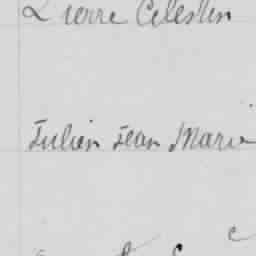 Pierre Célestin
Julien Jean Marie